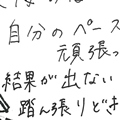 自分のペース
頑張っ
結果が出ない
踏ん張りどき